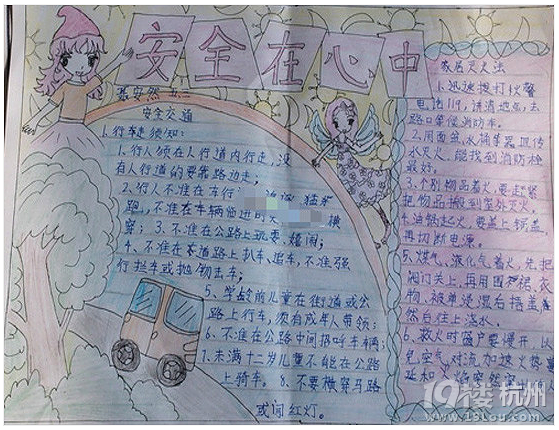 安全在心中
安全交通
1.行走须知:
1.行人须在人行道内行走,没
有人行道的要靠路边走;
2.行人不准在车行
跑,不准在车辆临近时突 横
穿; 3.不准在公路上玩耍、嬉闹;
4.不准在 道路上扒车、追车,不准强
行拦车或抛物击车;
5、学龄前儿童在街道或公
路上行车,须有成年人带领;
6.不准在公路中间招呼车辆;
7、未满十二岁儿童不能在公路
上骑车。8、不要横穿马路
或闯红灯。
家居灭火法
1.迅速拨打火警
电话119,讲清地点,去
路口等候消防车。
2.用面盆、水桶等器皿传
水灭火,能找到消防栓
最好。
3.个别物品着火,要赶紧
把物品搬到室外灭火。
4.油锅起火,要盖上锅盖
再切断电源。
5、煤气、液化气着火,先把
阀门关上,再用围裙、衣
物、被单浸湿后捂盖,
然后往上浇水。
6、救火时窗户要慢开,以
免空气对流加速火势
19楼 杭州
www.19lou.com